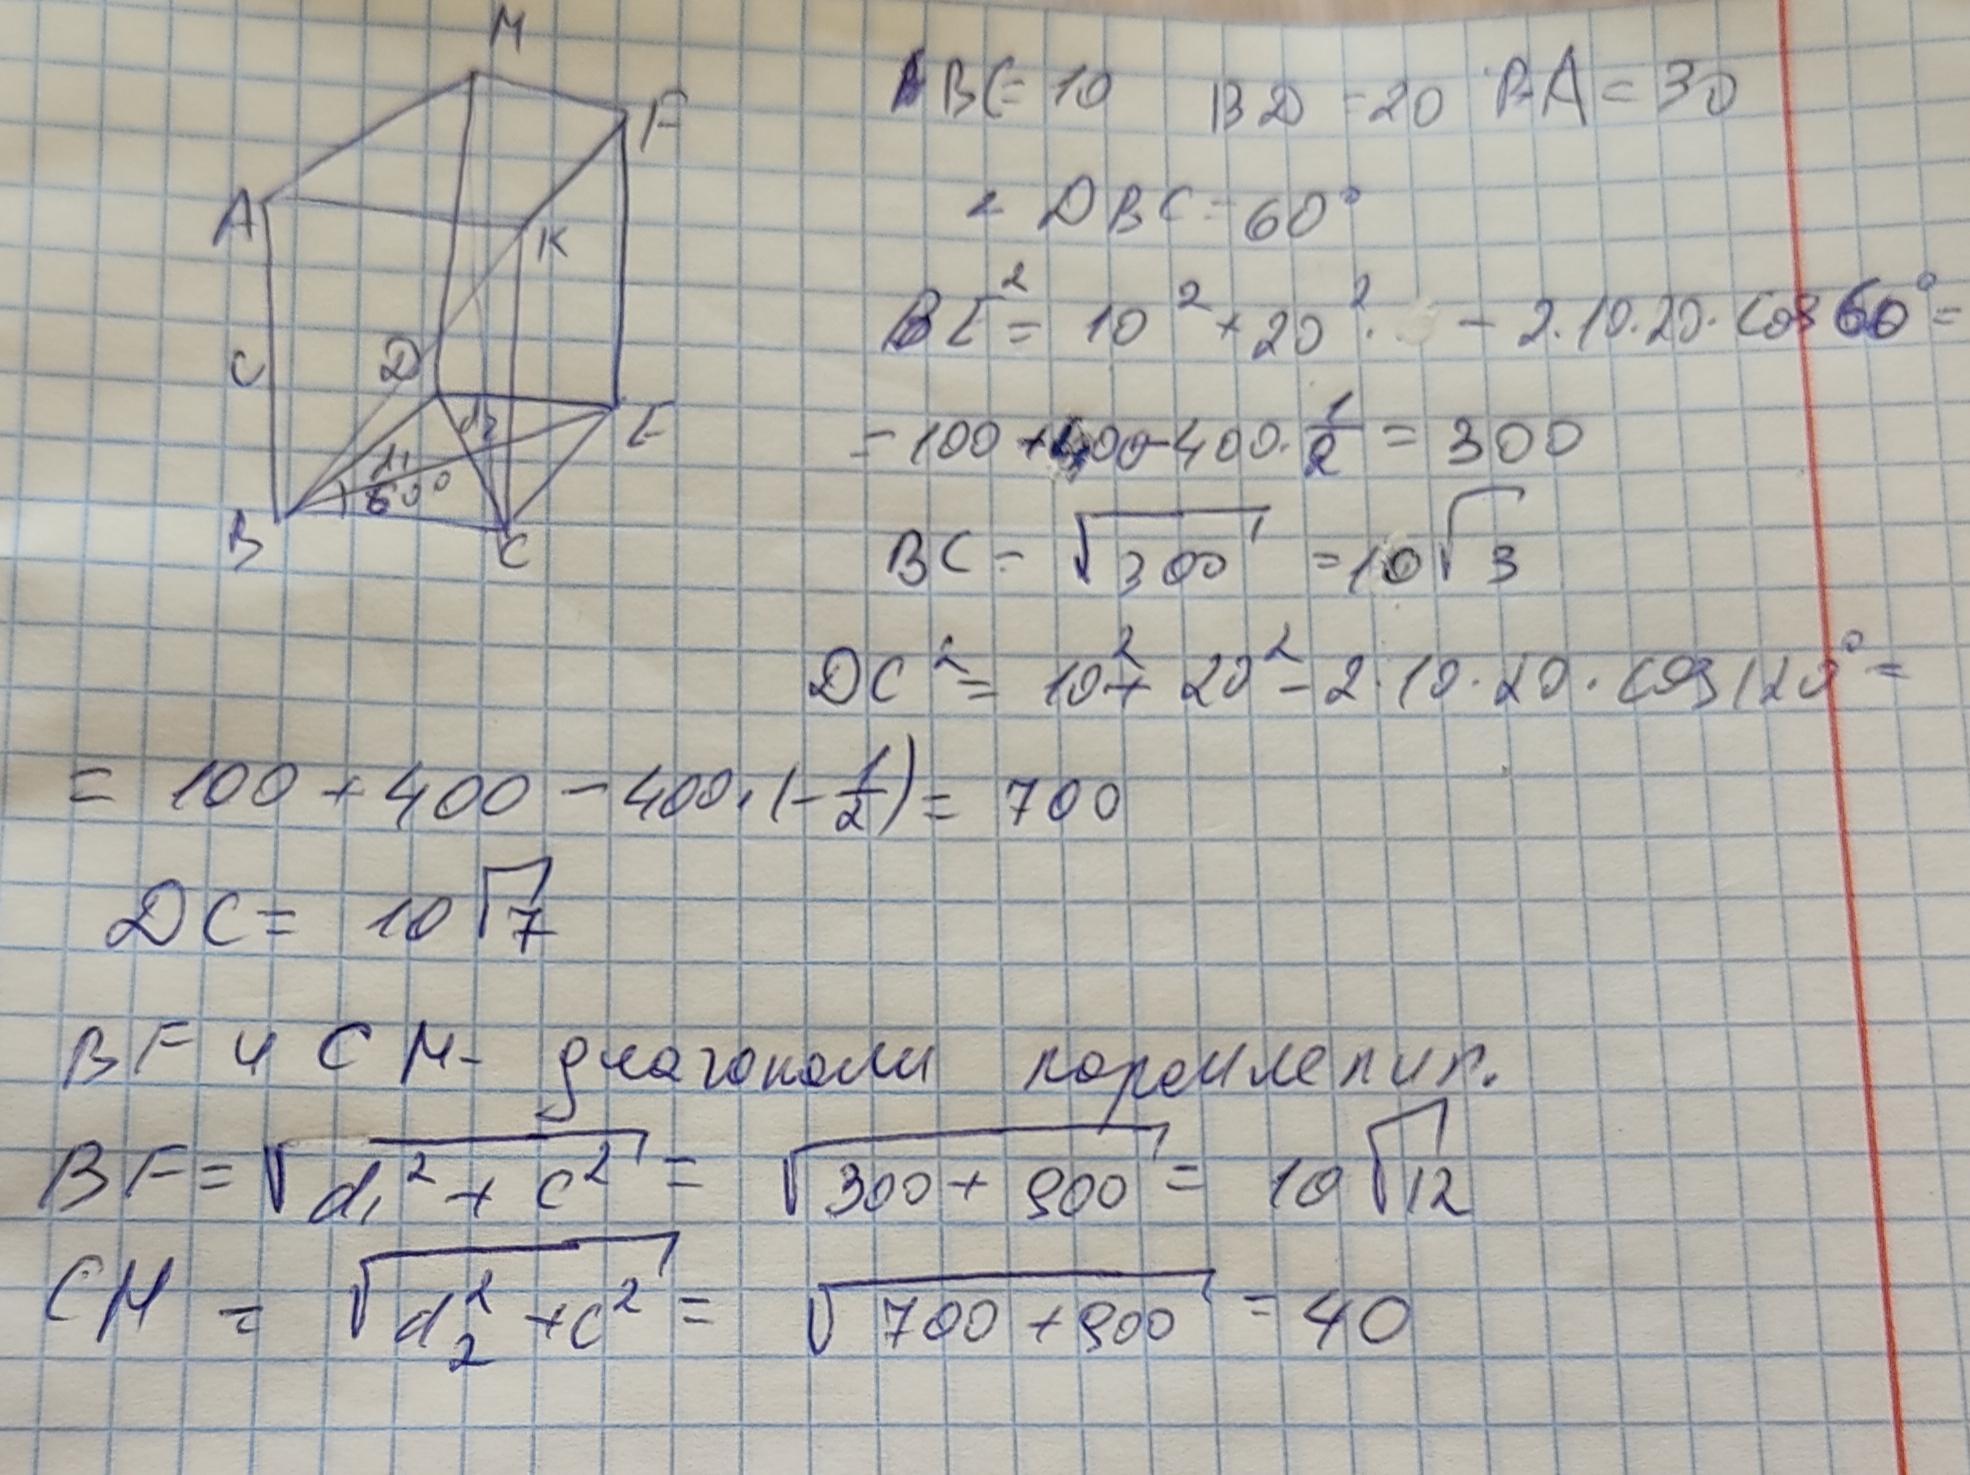 M
F
A
K
C
D
d2
E
d1
60°
B
C
BC = 10 BD = 20 BA = 30
∠ DBC = 60°
BE² = 10² + 20² · - 2·10·20·cos 60° =
= 100 + 400 - 400 · 1/2 = 300
BC = √300 = 10√3
DC² = 10² + 20² - 2·10·20·cos 120° =
= 100 + 400 - 400 · (-1/2) = 700
DC = 10√7
BF и CM - диагонали пораллепип.
BF = √(d₁² + c²) = √(300 + 900) = 10√12
CM = √(d₂² + c²) = √(700 + 900) = 40